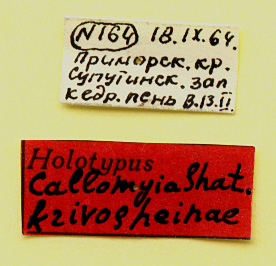 N164 18.IX.64.
Приморск. кр.
Супутинск. зап
кедр. пень В.13.II
Holotypus
Callomyia Shat.
krivosheinae